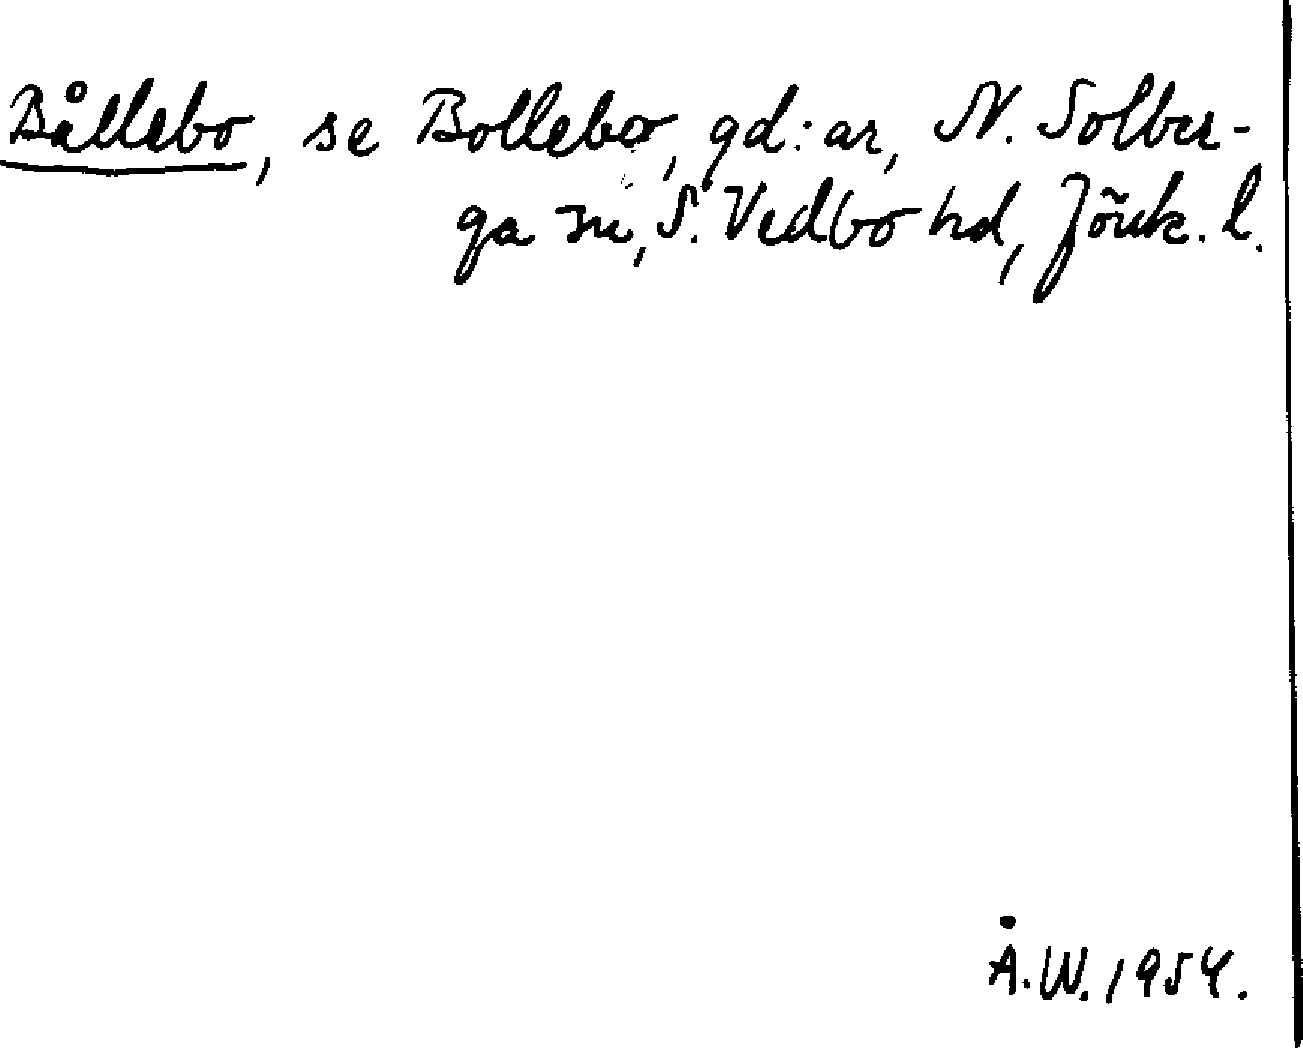 Bållebo, se Bollebo, gd:ar, N. Solber-
ga sn, S. Vedbo hd, Jönk. l.
Å.W. 1954.